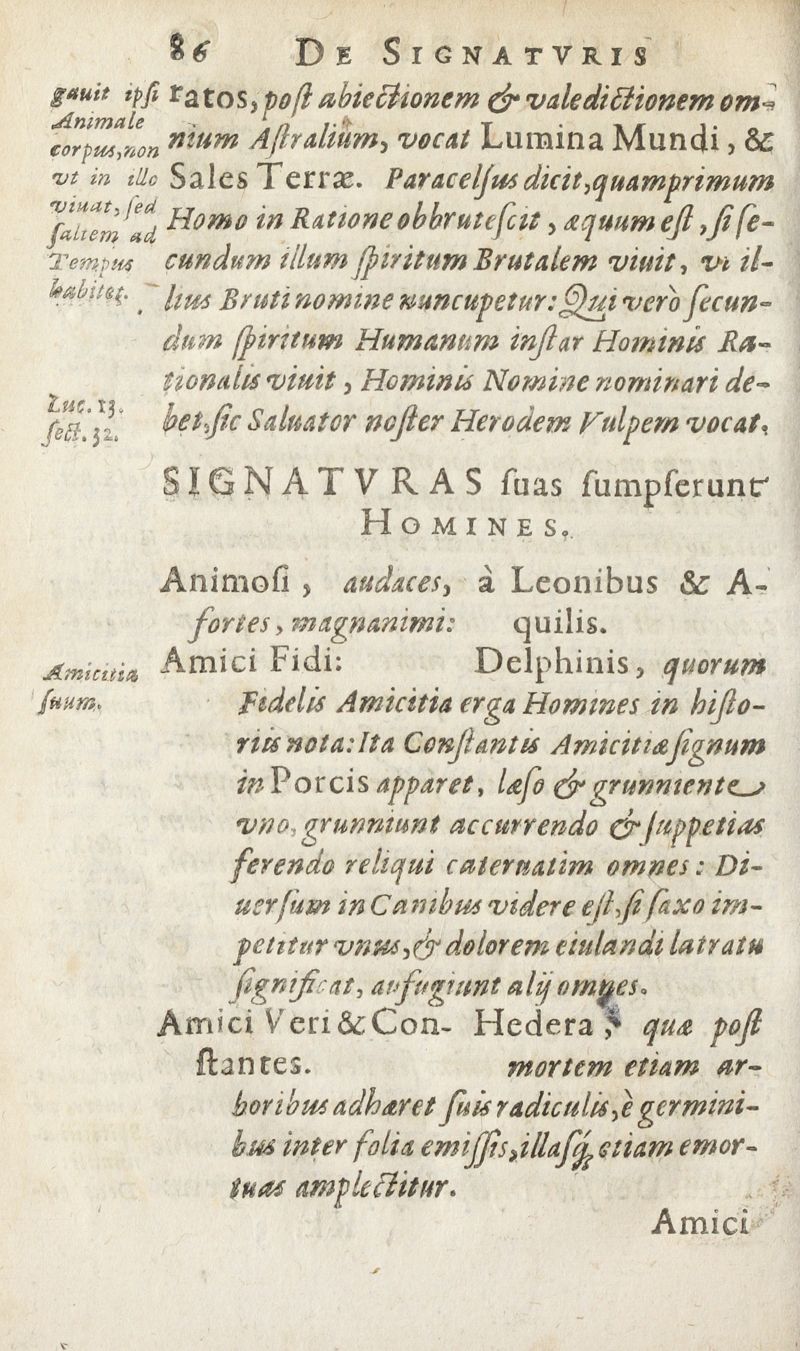 86 DE SIGNATVRIS
gauit ipsi
Animale
corpus, non
vt in illo
viuat, sed
saltem ad
Tempus
habitet.
ratos, post abiectionem & valedictionem om-
nium Astralium, vocat Lumina Mundi, &
Sales Terræ. Paracelsus dicit, quamprimum
Homo in Ratione obbrutescit, æquum est, si se-
cundum illum spiritum Brutalem viuit, vt il-
lius Bruti nomine nuncupetur: Qui verò secun-
dum spiritum Humanum instar Hominis Ra-
tionalis viuit, Hominis Nomine nominari de-
Luc. 13.
sect. 32.
bet, sic Saluator noster Herodem Vulpem vocat.
SIGNATVRAS suas sumpserunt
HOMINES.
Animosi, audaces, à Leonibus & A-
fortes, magnanimi: quilis.
Amicitia
suum.
Amici Fidi: Delphinis, quorum
Fidelis Amicitia erga Homines in histo-
riis nota: Ita Constantis Amicitiæ signum
in Porcis apparet, læso & grunniente
vno, grunniunt accurrendo & suppetias
ferendo reliqui cateruatim omnes: Di-
uersum in Canibus videre est, si saxo im-
petitur vnus, & dolorem eiulandi latratu
significat, aufugiunt alij omnes.
Amici Veri & Con- Hedera, quæ post
stantes. mortem etiam ar-
boribus adhæret suis radiculis, è germini-
bus inter folia emissis, illasq; etiam emor-
tuas amplectitur.
Amici